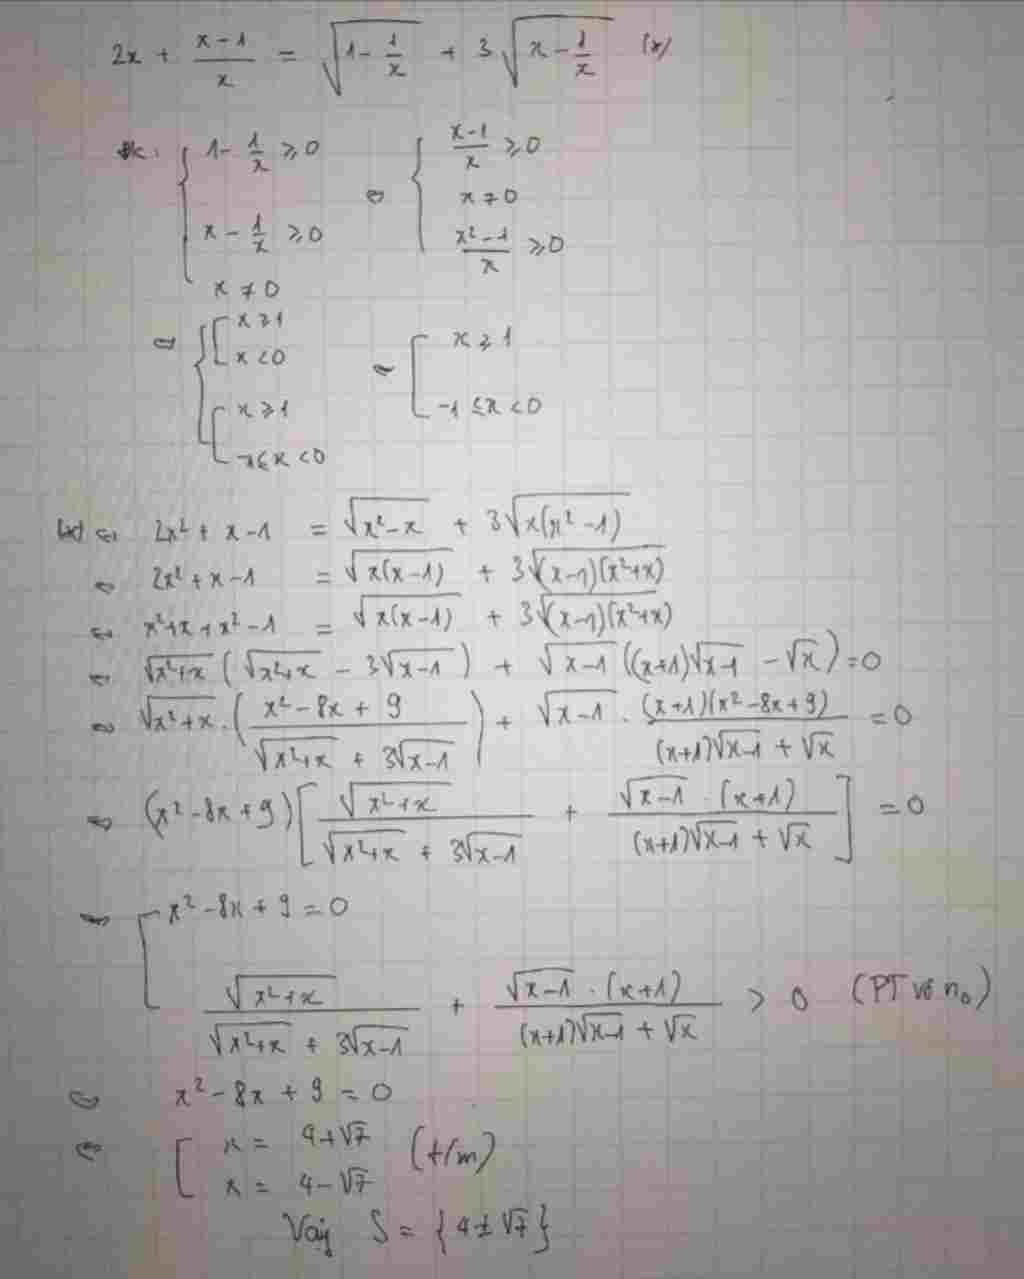 2x + (x-1)/x = √(1 - 1/x) + 3√(x - 1/x) (*)
đk: { 1 - 1/x ≥ 0 ; x - 1/x ≥ 0 ; x ≠ 0 ⇔ { (x-1)/x ≥ 0 ; x ≠ 0 ; (x² - 1)/x ≥ 0
⇔ { [ x ≥ 1 ; x < 0 ; [ x ≥ 1 ; -1 ≤ x < 0 ⇔ [ x ≥ 1 ; -1 ≤ x < 0
(*) ⇔ 2x² + x - 1 = √(x² - x) + 3√(x(x² - 1))
⇔ 2x² + x - 1 = √(x(x-1)) + 3√((x-1)(x²+x))
⇔ x² + x + x² - 1 = √(x(x-1)) + 3√((x-1)(x²+x))
⇔ √(x²+x) (√(x²+x) - 3√(x-1)) + √(x-1) ((x+1)√(x-1) - √x) = 0
⇔ √(x²+x) . ((x² - 8x + 9)/(√(x²+x) + 3√(x-1))) + √(x-1) . ((x+1)(x² - 8x + 9))/((x+1)√(x-1) + √x) = 0
⇔ (x² - 8x + 9) [ √(x²+x)/(√(x²+x) + 3√(x-1)) + (√(x-1) . (x+1))/((x+1)√(x-1) + √x) ] = 0
⇔ [ x² - 8x + 9 = 0
√(x²+x)/(√(x²+x) + 3√(x-1)) + (√(x-1) . (x+1))/((x+1)√(x-1) + √x) > 0 (PT vô n₀)
⇔ x² - 8x + 9 = 0
⇔ [ x = 4 + √7 ; x = 4 - √7 (t/m)
Vậy S = {4 ± √7}